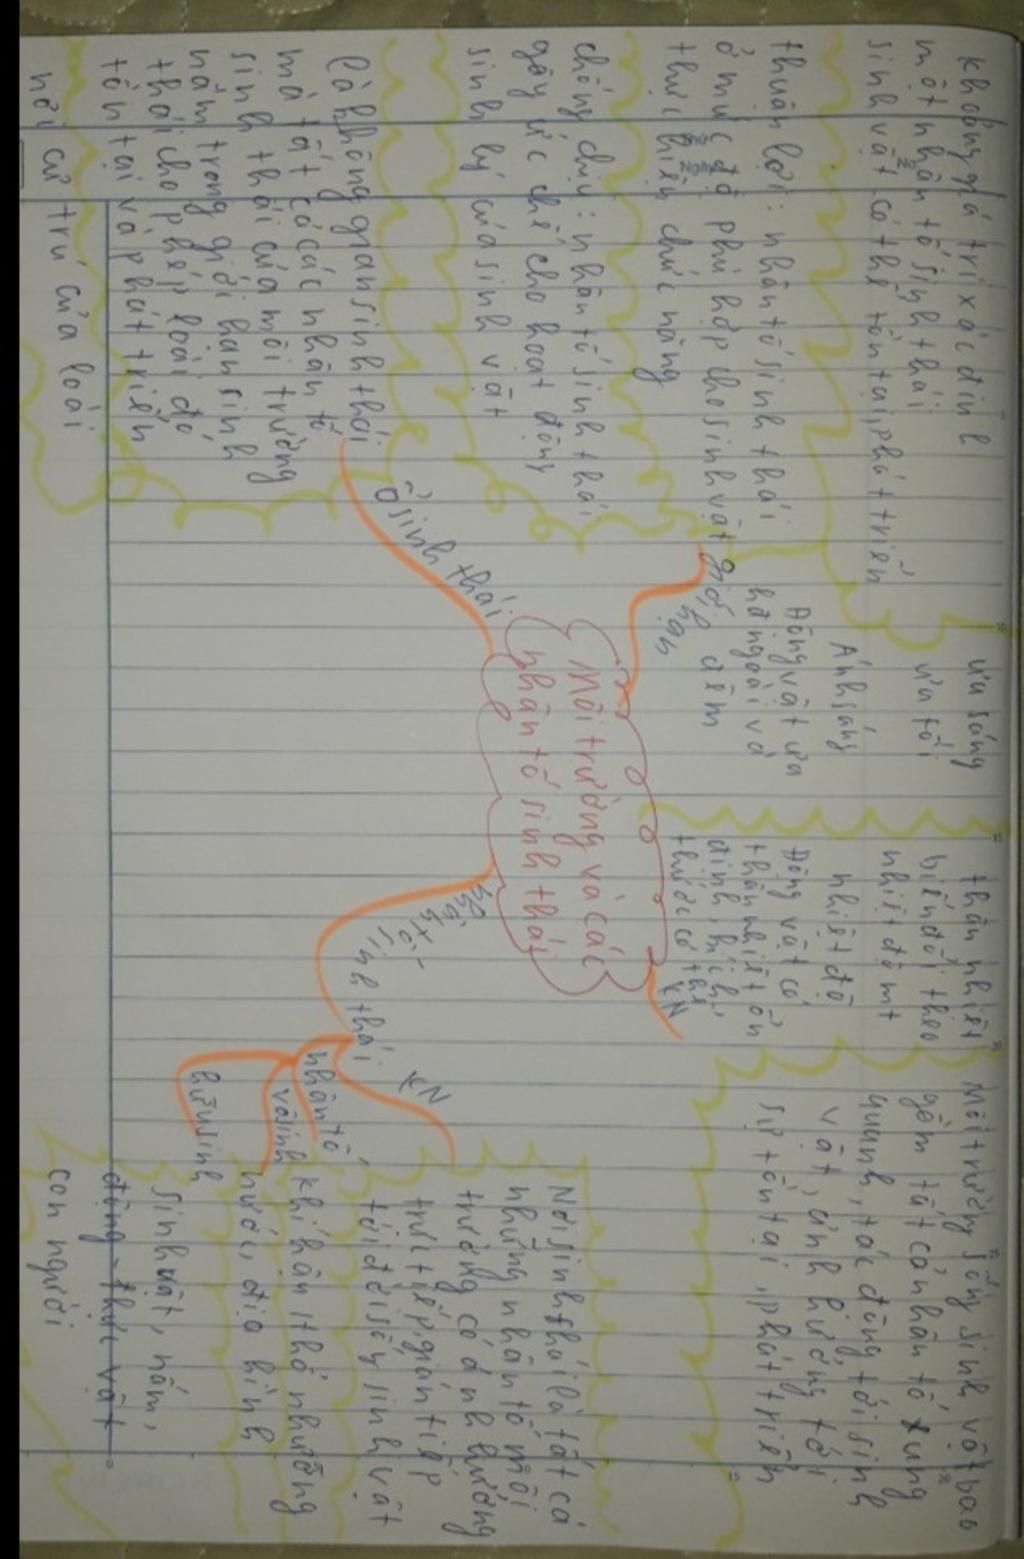 khoảng giá trị xác định
một nhân tố sinh thái
sinh vật có thể tồn tại, phát triển
thuận lợi: nhân tố sinh thái
ở mức độ phù hợp cho sinh vật
thực hiện chức năng
chống chịu: nhân tố sinh thái
gây ức chế cho hoạt động
sinh lý của sinh vật
Là không gian sinh thái
mà tất cả các nhân tố
sinh thái của môi trường
nằm trong giới hạn sinh
thái cho phép loài đó
tồn tại và phát triển
nơi cư trú của loài
giới hạn
Ổ sinh thái
ưa sáng
ưa tối
Ánh sáng
Động vật ưa
hđ ngoài và
đêm
Môi trường và các
nhân tố sinh thái
thân nhiệt
biến đổi theo
nhiệt độ mt
nhiệt độ
Động vật có
thân nhiệt ổn
định, kích
thước cơ thể
KN
nhân tố
sinh thái
KN
nhân tố
vô sinh
hữu sinh
Môi trường sống sinh vật bao
gồm tất cả nhân tố xung
quanh, tác động tới sinh
vật, ảnh hưởng tới
sự tồn tại, phát triển
Nơi sinh thái là tất cả
những nhân tố môi
trường có ảnh hưởng
trực tiếp, gián tiếp
tới đời sống sinh vật
khí hậu, thổ nhưỡng
nước, địa hình
sinh vật, nấm,
động, thực vật
con người